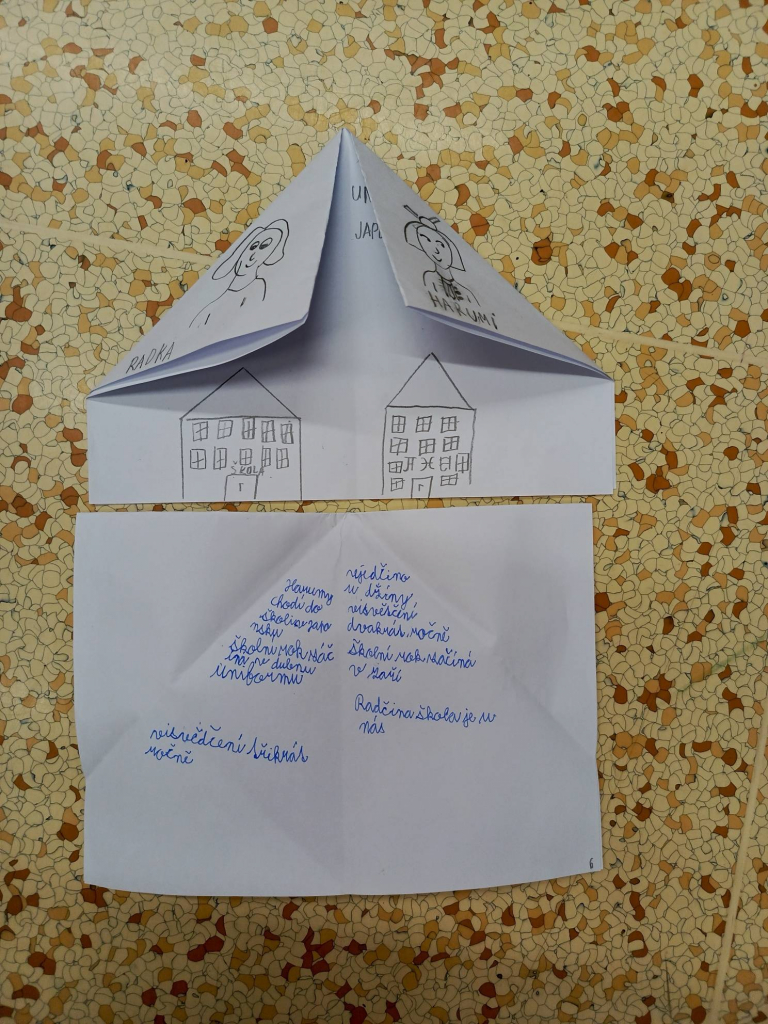 UN
JAP
RADKA
HARUMI
ŠKOLA
Harumy
chodí do
škole v Japo
nsku
Školní rok zač
íná v dubnu
Uniformu
visvědčení třikrát
ročně
u džíny
visvěsčení
dvakrát ročně
školní rok začíná
v září
Radčina škola je u
nás
6